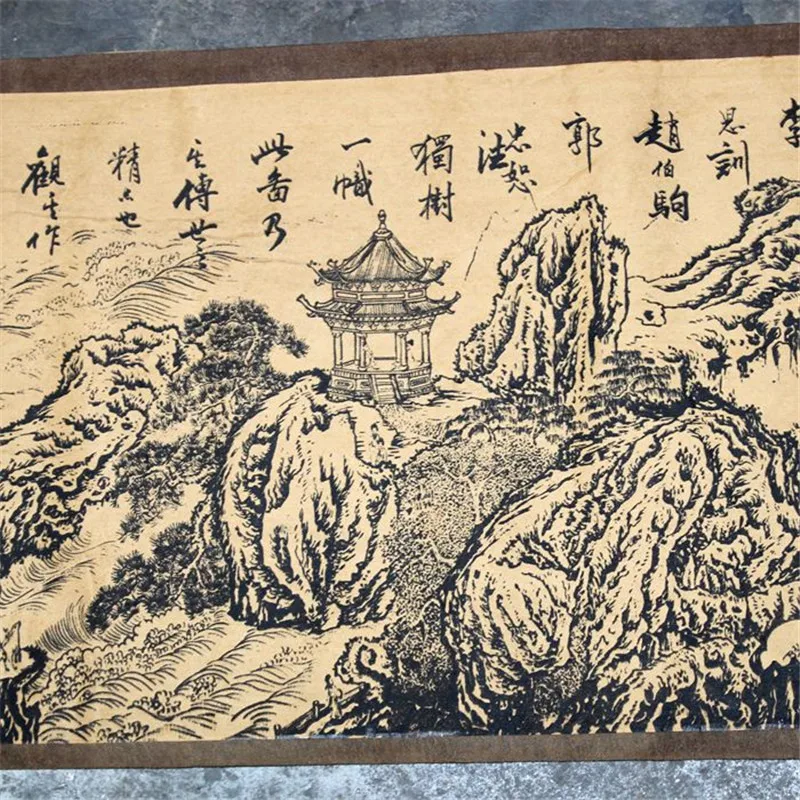 李
思訓
趙伯駒
郭
忠恕
法
獨樹
一幟
此啚乃
其傳世之
精品也
觀其作